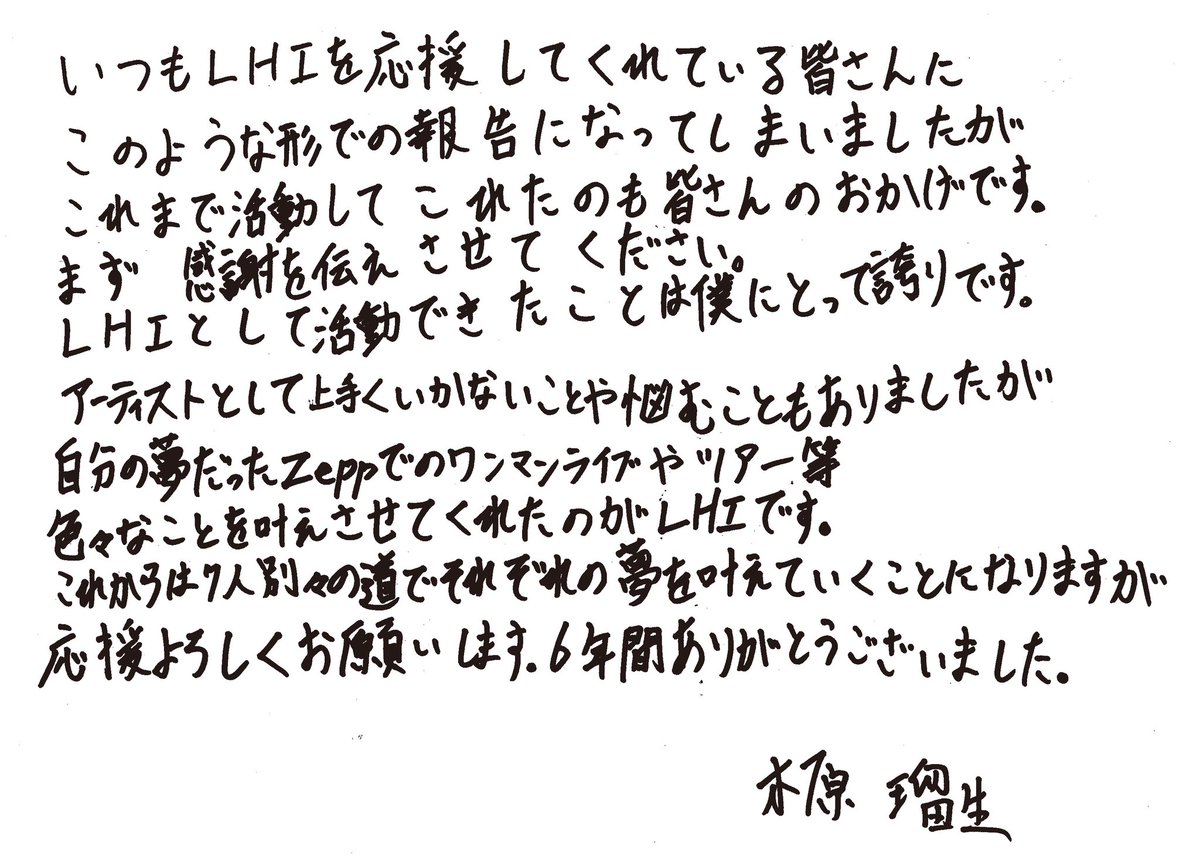 いつもLHIを応援してくれている皆さんに
このような形での報告になってしまいましたが
これまで活動してこれたのも皆さんのおかげです。
まず 感謝を伝えさせてください。
LHIとして活動できたことは僕にとって誇りです。
アーティストとして上手くいかないことや悩むこともありましたが
自分の夢だったZeppでのワンマンライブやツアー等
色々なことを叶えさせてくれたのがLHIです。
これからは7人別々の道でそれぞれの夢を叶えていくことになりますが
応援よろしくお願いします。6年間ありがとうございました。
木原 瑠生